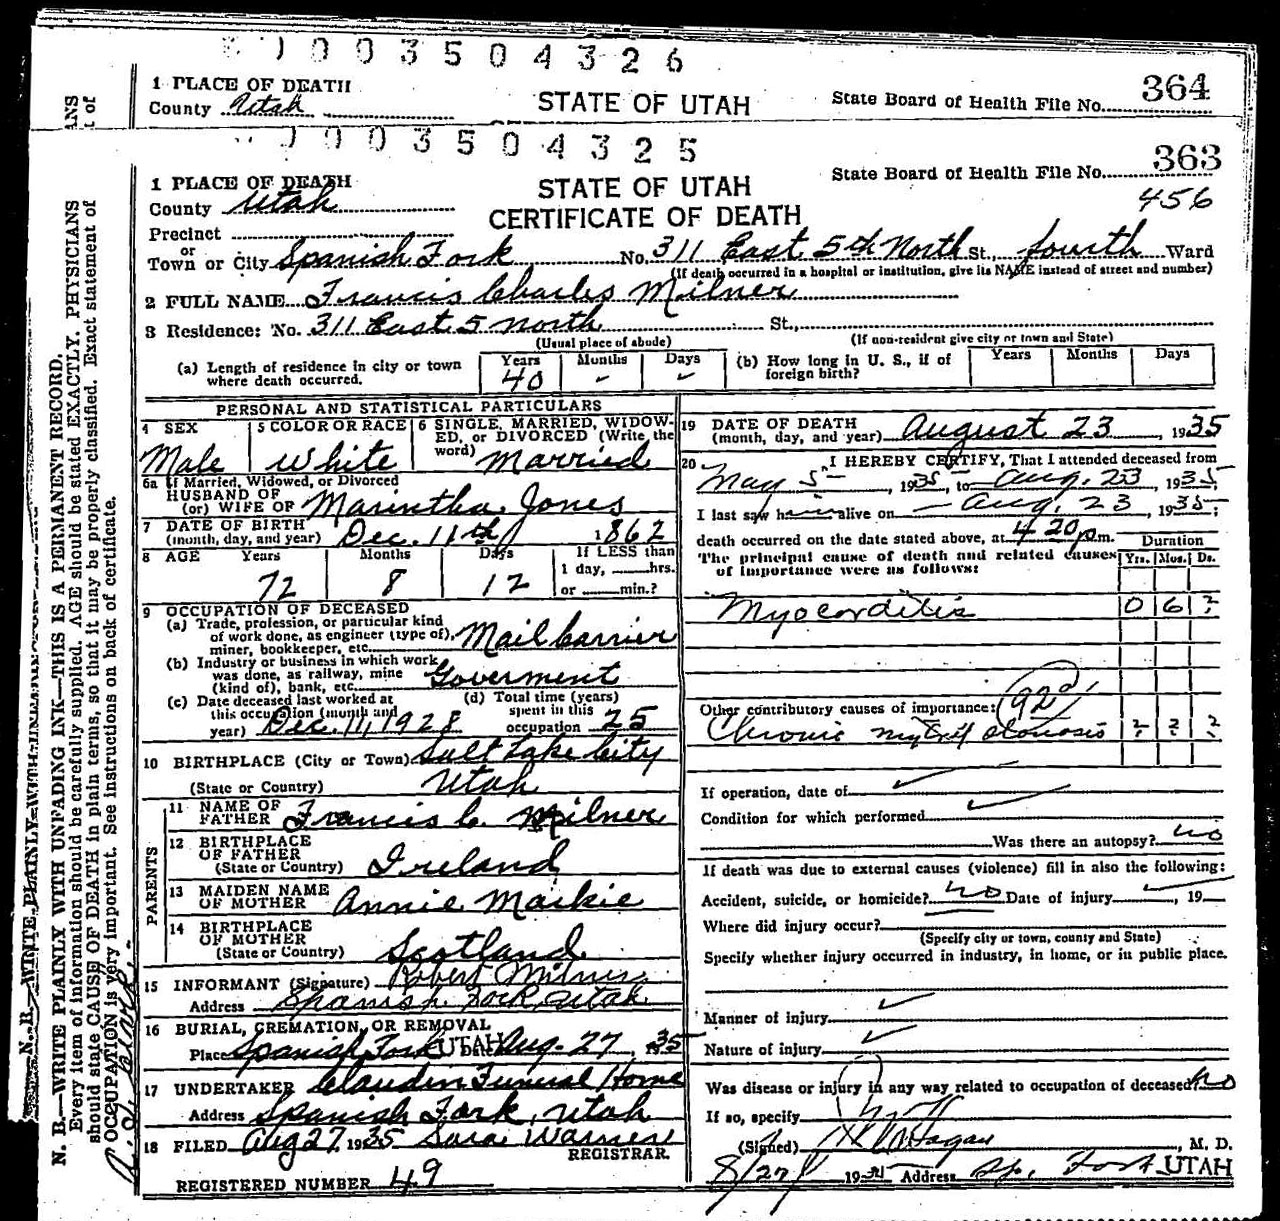 0 0 3 5 0 4 3 2 6
1 PLACE OF DEATH
County Utah
STATE OF UTAH
State Board of Health File No. 364
0 0 3 5 0 4 3 2 5
1 PLACE OF DEATH
STATE OF UTAH
State Board of Health File No. 363
County Utah
CERTIFICATE OF DEATH
456
Precinct
or
Town or City Spanish Fork No. 311 East 5th North St., fourth Ward
(If death occurred in a hospital or institution, give its NAME instead of street and number)
2 FULL NAME Francis Charles Milner
3 Residence: No. 311 East 5 North St.,
(Usual place of abode) (If non-resident give city or town and State)
(a) Length of residence in city or town where death occurred. Years 40 Months - Days -
(b) How long in U. S., if of foreign birth? Years Months Days
PERSONAL AND STATISTICAL PARTICULARS
4 SEX Male
5 COLOR OR RACE White
6 SINGLE, MARRIED, WIDOWED, or DIVORCED (Write the word) Married
6a If Married, Widowed, or Divorced
HUSBAND OF
(or) WIFE OF Marintha Jones
7 DATE OF BIRTH
(month, day, and year) Dec. 11th 1862
8 AGE Years 72 Months 8 Days 12 If LESS than 1 day, hrs. or min.?
9 OCCUPATION OF DECEASED
(a) Trade, profession, or particular kind
of work done, as engineer (type of),
miner, bookkeeper, etc. Mail Carrier
(b) Industry or business in which work
was done, as railway, mine
(kind of), bank, etc. Goverment
(c) Date deceased last worked at
this occupation (month and
year) Dec. 11, 1928
(d) Total time (years)
spent in this
occupation 25
10 BIRTHPLACE (City or Town) Salt Lake City
(State or Country) Utah
PARENTS
11 NAME OF
FATHER Francis C. Milner
12 BIRTHPLACE
OF FATHER
(State or Country) Ireland
13 MAIDEN NAME
OF MOTHER Annie Mackie
14 BIRTHPLACE
OF MOTHER
(State or Country) Scotland
15 INFORMANT (Signature) Robert Milner
Address Spanish Fork, Utah
16 BURIAL, CREMATION, OR REMOVAL
Place Spanish Fork UTAH Date Aug. 27, 1935
17 UNDERTAKER Claudin Funeral Home
Address Spanish Fork, Utah
18 FILED Aug 27 1935 Sara Warner
REGISTRAR.
REGISTERED NUMBER 49
19 DATE OF DEATH
(month, day, and year) August 23, 1935
20 I HEREBY CERTIFY, That I attended deceased from
May 5, 1935, to Aug. 23, 1935;
I last saw him alive on Aug. 23, 1935;
death occurred on the date stated above, at 4 20 p.m.
The principal cause of death and related causes
of importance were as follows:
Duration
Yrs. Mos. Ds.
Myocarditis 0 6 ?
92
Other contributory causes of importance:
Chronic stenosis ? ? ?
If operation, date of
Condition for which performed
Was there an autopsy? no
If death was due to external causes (violence) fill in also the following:
Accident, suicide, or homicide? no Date of injury , 19
Where did injury occur?
(Specify city or town, county and State)
Specify whether injury occurred in industry, in home, or in public place.
Manner of injury
Nature of injury
Was disease or injury in any way related to occupation of deceased? no
If so, specify
(Signed) Hagan, M. D.
8/27 1935 Address Sp. Fork UTAH
N. B.—WRITE PLAINLY WITH UNFADING INK—THIS IS A PERMANENT RECORD.
Every item of information should be carefully supplied. AGE should be stated EXACTLY. PHYSICIANS
should state CAUSE OF DEATH in plain terms, so that it may be properly classified. Exact statement of
OCCUPATION is very important. See instructions on back of certificate.